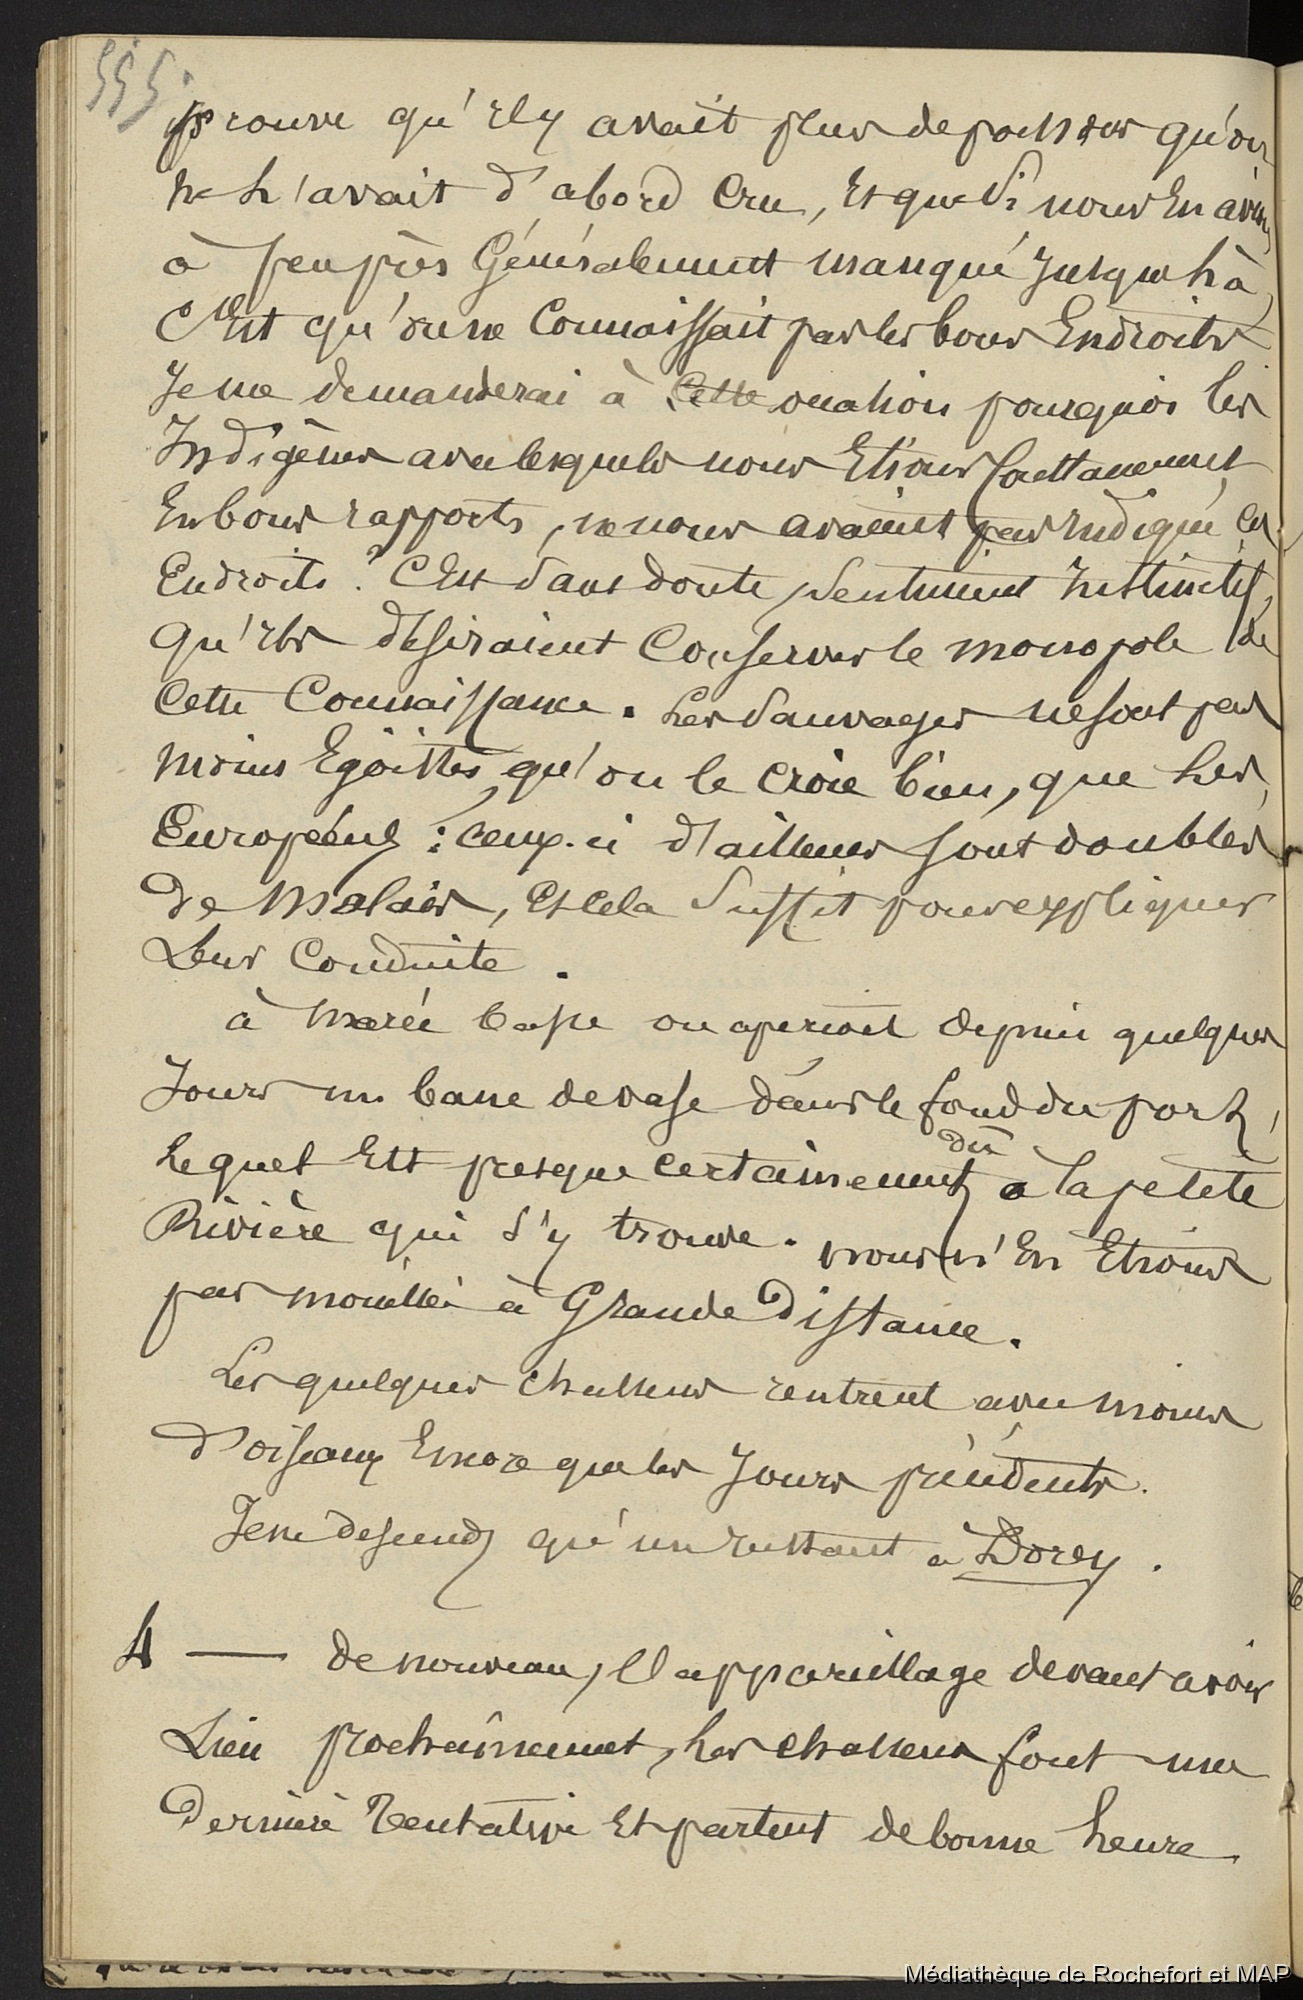 555.
prouve qu'il y avait plus de poissons qu'on
ne l'avait d'abord cru, Et que si nous En avions
à peu près Généralement manqué jusque là,
C'Est qu'on ne Connaissait pas les bons Endroits
Je me demanderai à cette occasion pourquoi les
Indigènes avec lesquels nous Etions constamment
En bons rapports, ne nous avaient pas indiqué ces
Endroits ? C'Est sans doute sentiment instinctif,
qu'ils désiraient Conserver le monopole de
Cette Connaissance. Les sauvages ne sont pas
moins Egoïstes, qu'on le croie bien, que les
Européens : ceux-ci d'ailleurs sont doublés
de Malais, Et cela suffit pour expliquer
Leur Conduite.
à marée basse on aperçoit depuis quelques
Jours un banc de vase dans le fond du port,
lequel Est presque certainement dû à la petite
Rivière qui s'y trouve. nous n'En Etions
pas mouillés à Grande Distance.
Les quelques chasseurs rentrent avec moins
d'oiseaux Encore que les Jours précédents.
Je ne descends qu'un instant à Dorey.
4 — de nouveau, l'appareillage devant avoir
Lieu prochaînement, les chasseurs font une
Dernière Tentative Et partent de bonne heure
Médiathèque de Rochefort et MAP